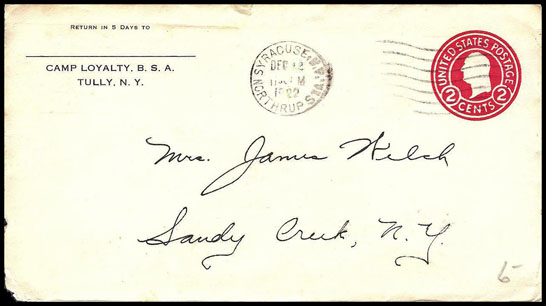 RETURN IN 5 DAYS TO
CAMP LOYALTY, B. S. A.
TULLY, N. Y.
SYRACUSE, N.Y.
DEC 12
M
1922
NORTHRUP STA.
UNITED STATES POSTAGE
2 CENTS 2
Mrs. James Welch
Sandy Creek, N.Y.
6-